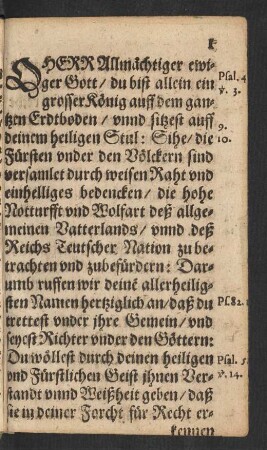 O HERR Allmächtiger ewi-
ger Gott / du bist allein ein
grosser König auff dem gan-
tzen Erdtboden / vnnd sitzest auff
deinem heiligen Stul: Sihe / die
Fürsten vnder den Völckern sind
versamlet durch weisen Raht vnd
einhelliges bedencken / die hohe
Notturfft vnd Wolfart deß allge-
meinen Vatterlands / vnnd deß
Reichs Teutscher Nation zu be-
trachten vnd zubefürdern: Dar-
umb ruffen wir deinē allerheilig-
sten Namen hertziglich an / daß du
trettest vnder jhre Gemein / vnd
seyest Richter vnder den Göttern:
Du wöllest durch deinen heiligen
vnd Fürstlichen Geist jhnen Ver-
standt vnnd Weißheit geben / daß
sie in deiner Forcht für Recht er-
kennen
Psal. 4
v. 3.
9.
10.
Ps82.
Psal. 5.
v. 14.